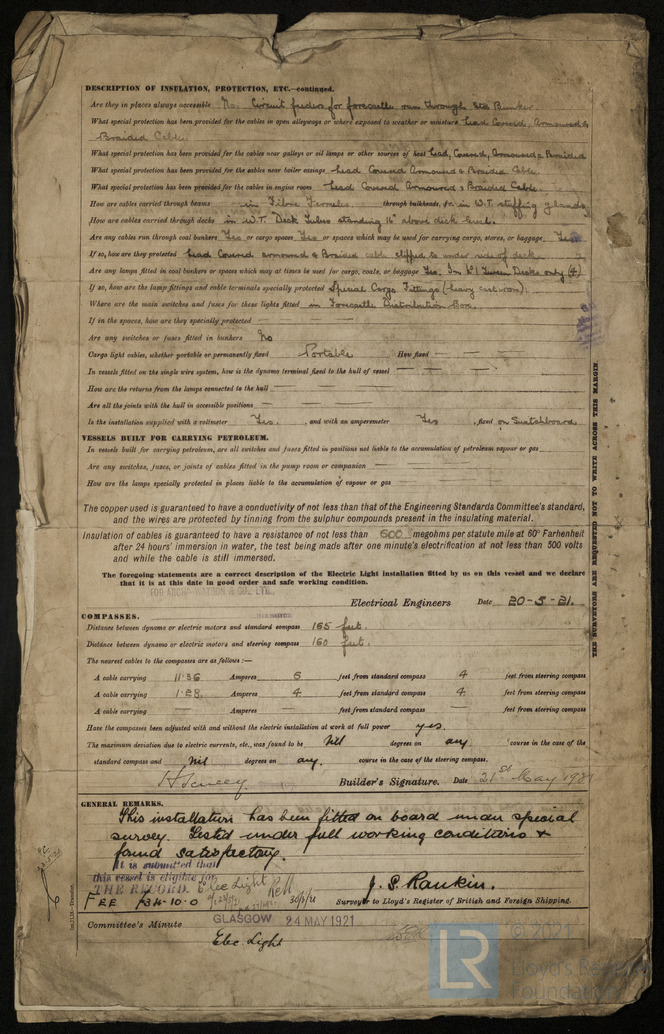 DESCRIPTION OF INSULATION, PROTECTION, ETC.—continued.
Are they in places always accessible No. Circuit feeders for forecastle run through Stb Bunker
What special protection has been provided for the cables in open alleyways or where exposed to weather or moisture Lead Covered, Armoured &
Braided Cable.
What special protection has been provided for the cables near galleys or oil lamps or other sources of heat Lead, Covered, Armoured & Braided
What special protection has been provided for the cables near boiler casings Lead Covered Armoured & Braided Cable.
What special protection has been provided for the cables in engine room Lead Covered Armoured & Braided Cable.
How are cables carried through beams in Fibre Ferrules through bulkheads, &c. in W.T. stuffing glands
How are cables carried through decks in W.T. Deck Tubes standing 16" above deck level.
Are any cables run through coal bunkers Yes or cargo spaces Yes or spaces which may be used for carrying cargo, stores, or baggage. Yes
If so, how are they protected Lead Covered armoured & Braided cable clipped to under side of deck
Are any lamps fitted in coal bunkers or spaces which may at times be used for cargo, coals, or baggage Yes. In No 1 Tween Decks only (4)
If so, how are the lamp fittings and cable terminals specially protected Special Cargo Fittings (heavy cast iron).
Where are the main switches and fuses for these lights fitted in Forecastle Distribution Box.
If in the spaces, how are they specially protected —
Are any switches or fuses fitted in bunkers No
Cargo light cables, whether portable or permanently fixed Portable How fixed — — —
In vessels fitted on the single wire system, how is the dynamo terminal fixed to the hull of vessel — — —
How are the returns from the lamps connected to the hull — —
Are all the joints with the hull in accessible positions — —
Is the installation supplied with a voltmeter Yes. , and with an amperemeter Yes , fixed on Switchboard
VESSELS BUILT FOR CARRYING PETROLEUM.
In vessels built for carrying petroleum, are all switches and fuses fitted in positions not liable to the accumulation of petroleum vapour or gas
Are any switches, fuses, or joints of cables fitted in the pump room or companion — — —
How are the lamps specially protected in places liable to the accumulation of vapour or gas — — —
The copper used is guaranteed to have a conductivity of not less than that of the Engineering Standards Committee's standard,
and the wires are protected by tinning from the sulphur compounds present in the insulating material.
Insulation of cables is guaranteed to have a resistance of not less than 600 megohms per statute mile at 60° Farhenheit
after 24 hours' immersion in water, the test being made after one minute's electrification at not less than 500 volts
and while the cable is still immersed.
The foregoing statements are a correct description of the Electric Light installation fitted by us on this vessel and we declare
that it is at this date in good order and safe working condition.
FOR ARCHD WATSON & CO. LTD.
Electrical Engineers Date 20-5-21.
COMPASSES.
Distance between dynamo or electric motors and standard compass 165 feet.
Distance between dynamo or electric motors and steering compass 160 feet.
The nearest cables to the compasses are as follows:—
A cable carrying 11.36 Amperes 6 feet from standard compass 4 feet from steering compass
A cable carrying 1.28 Amperes 4 feet from standard compass 4 feet from steering compass
A cable carrying — Amperes — feet from standard compass — feet from steering compass
Have the compasses been adjusted with and without the electric installation at work at full power yes.
The maximum deviation due to electric currents, etc., was found to be Nil degrees on any course in the case of the
standard compass and Nil degrees on any. course in the case of the steering compass.
Builder's Signature. Date 21st May 1921
GENERAL REMARKS.
This installation has been fitted on board under special
survey. Tested under full working conditions &
found satisfactory.
It is submitted that
this vessel is eligible for
THE RECORD. Elec Light
30/5/21
J. S. Rankin.
FEE £34-10-0
Surveyor to Lloyd's Register of British and Foreign Shipping.
Committee's Minute GLASGOW 24 MAY 1921
Elec Light
THE SURVEYORS ARE REQUESTED NOT TO WRITE ACROSS THIS MARGIN.
LR
© 2021
Lloyd's Register
Foundation